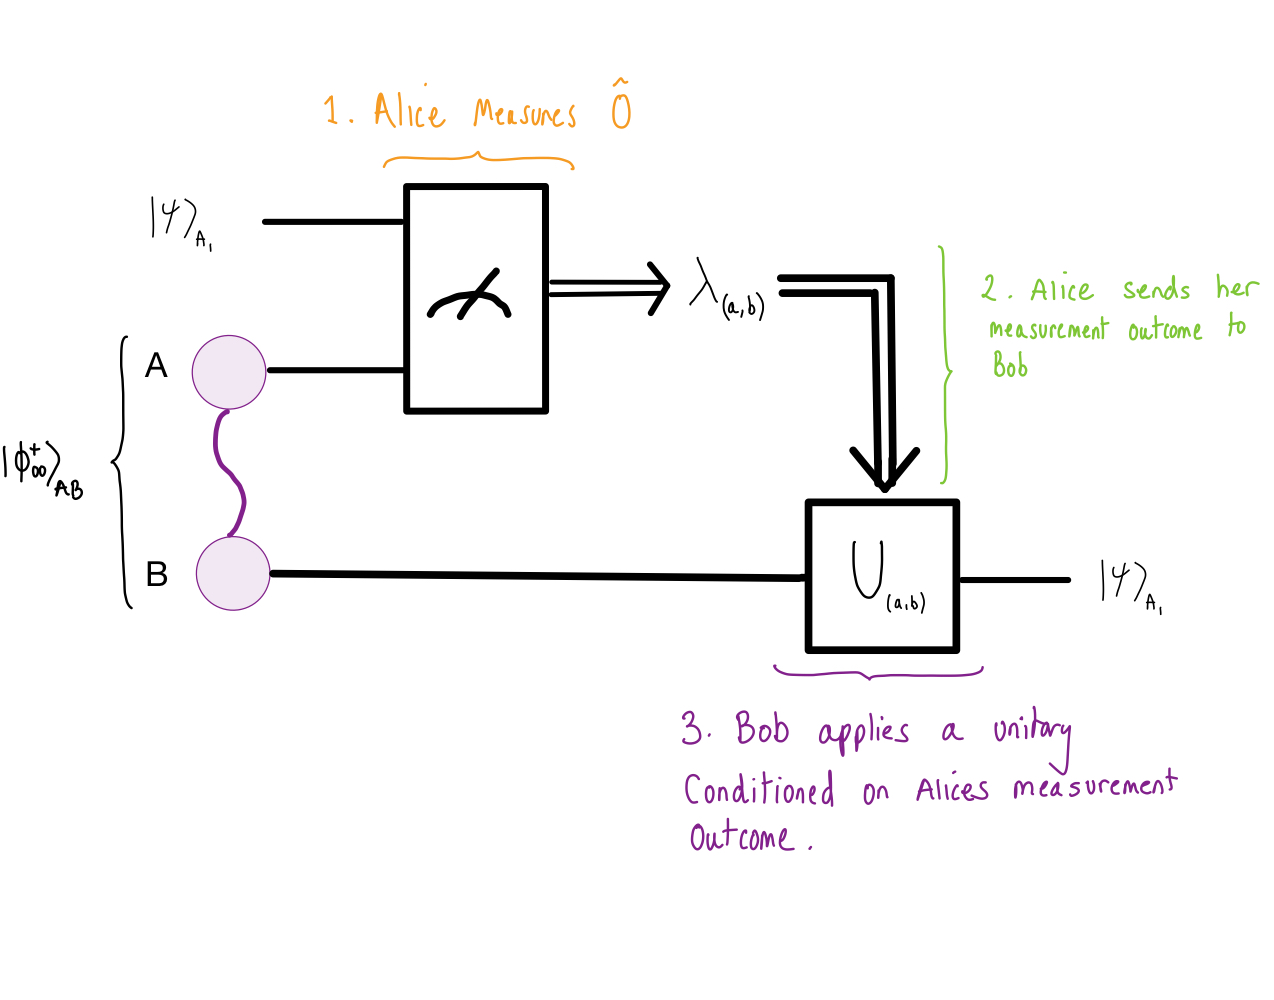 1. Alice Measures Ô
|ψ⟩A₁
λ(a,b)
2. Alice sends her
measurement outcome to
Bob
A
|ϕ⁺₀₀⟩AB
B
U(a,b)
|ψ⟩A₁
3. Bob applies a unitary
Conditioned on Alices measurement
Outcome.